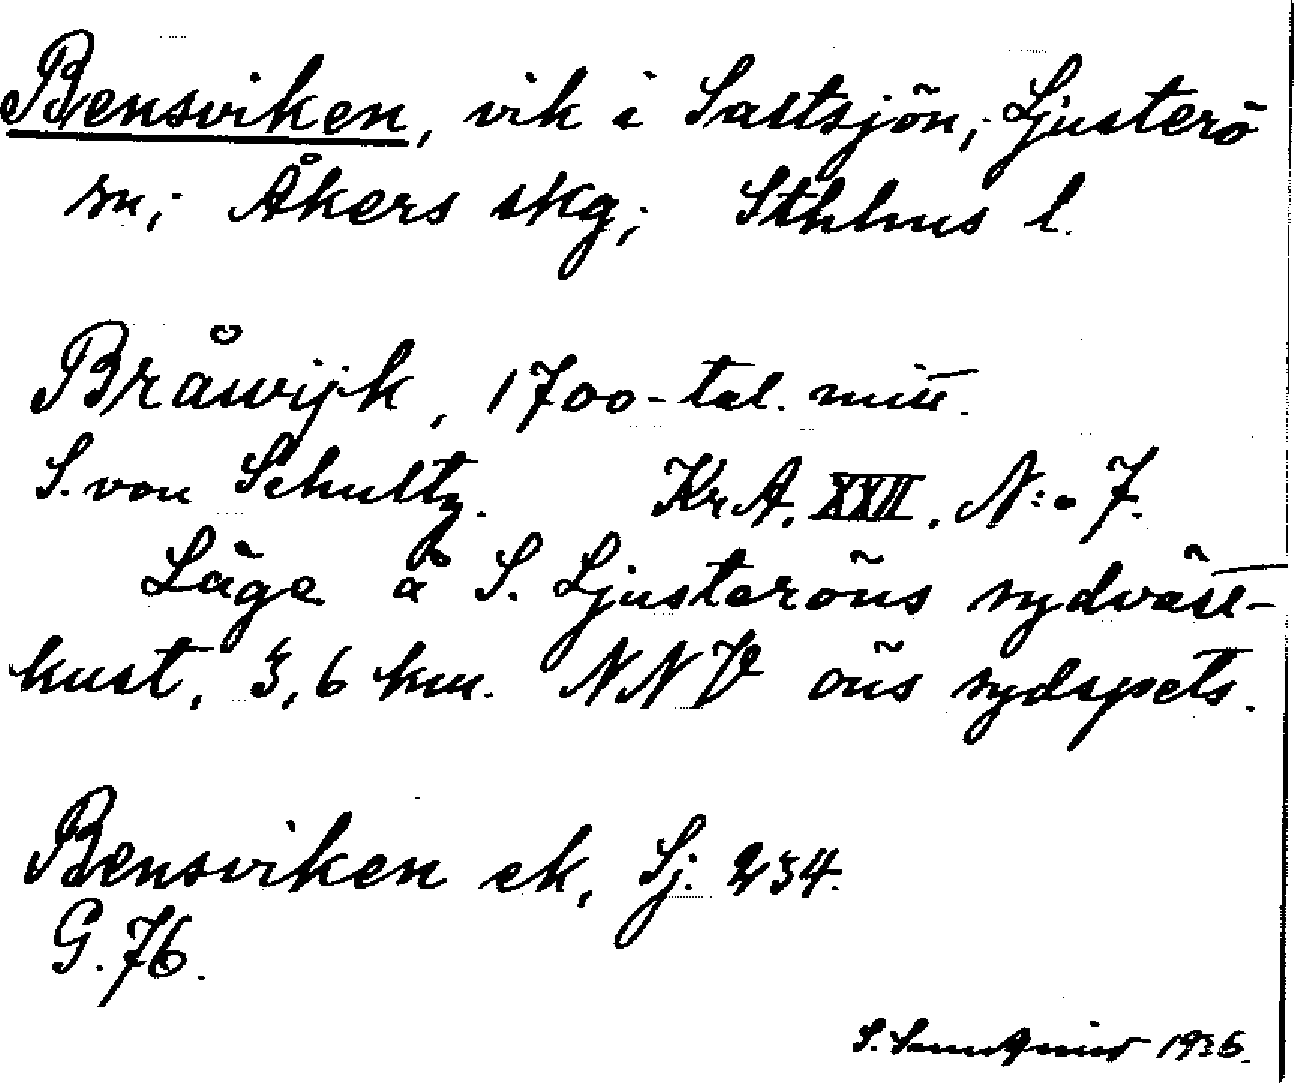 Bensviken, vik i Saltsjön, Ljusterö
sn, Åkers skg, Sthlms l.
Bråwijk, 1700-tal. mitt.
S. von Schultz. Kr A. XXII. N:o 7.
Läge å S. Ljusteröns sydväst-
kust, 3,6 km. NNV öns sydspets.
Bensviken ek, Sj. 234.
G. 76.
S. 1936.